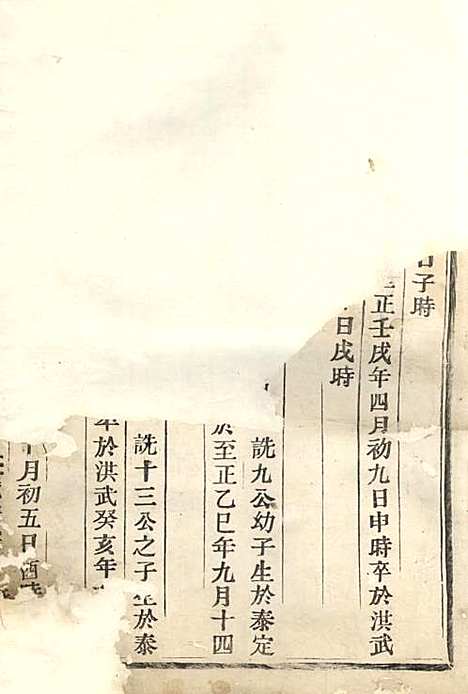 日子時
正壬戌年四月初九日申時卒於洪武
日戌時
詵九公幼子生於泰定
於至正乙巳年九月十四
詵十三公之子生於泰
卒於洪武癸亥年
月初五日酉時